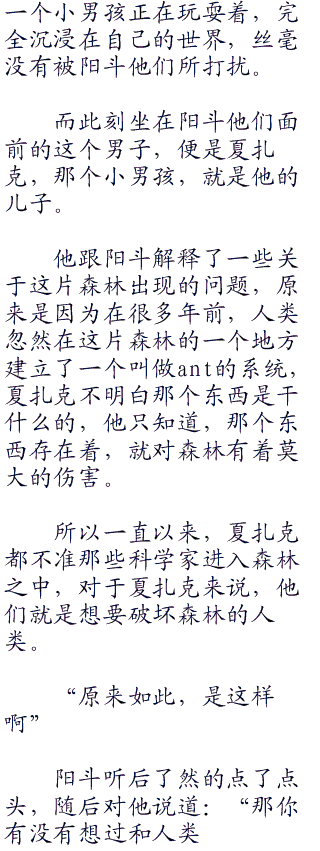 一个小男孩正在玩耍着，完
全沉浸在自己的世界，丝毫
没有被阳斗他们所打扰。
而此刻坐在阳斗他们面
前的这个男子，便是夏扎
克，那个小男孩，就是他的
儿子。
他跟阳斗解释了一些关
于这片森林出现的问题，原
来是因为在很多年前，人类
忽然在这片森林的一个地方
建立了一个叫做ant的系统，
夏扎克不明白那个东西是干
什么的，他只知道，那个东
西存在着，就对森林有着莫
大的伤害。
所以一直以来，夏扎克
都不准那些科学家进入森林
之中，对于夏扎克来说，他
们就是想要破坏森林的人
类。
“原来如此，是这样
啊”
阳斗听后了然的点了点
头，随后对他说道：“那你
有没有想过和人类